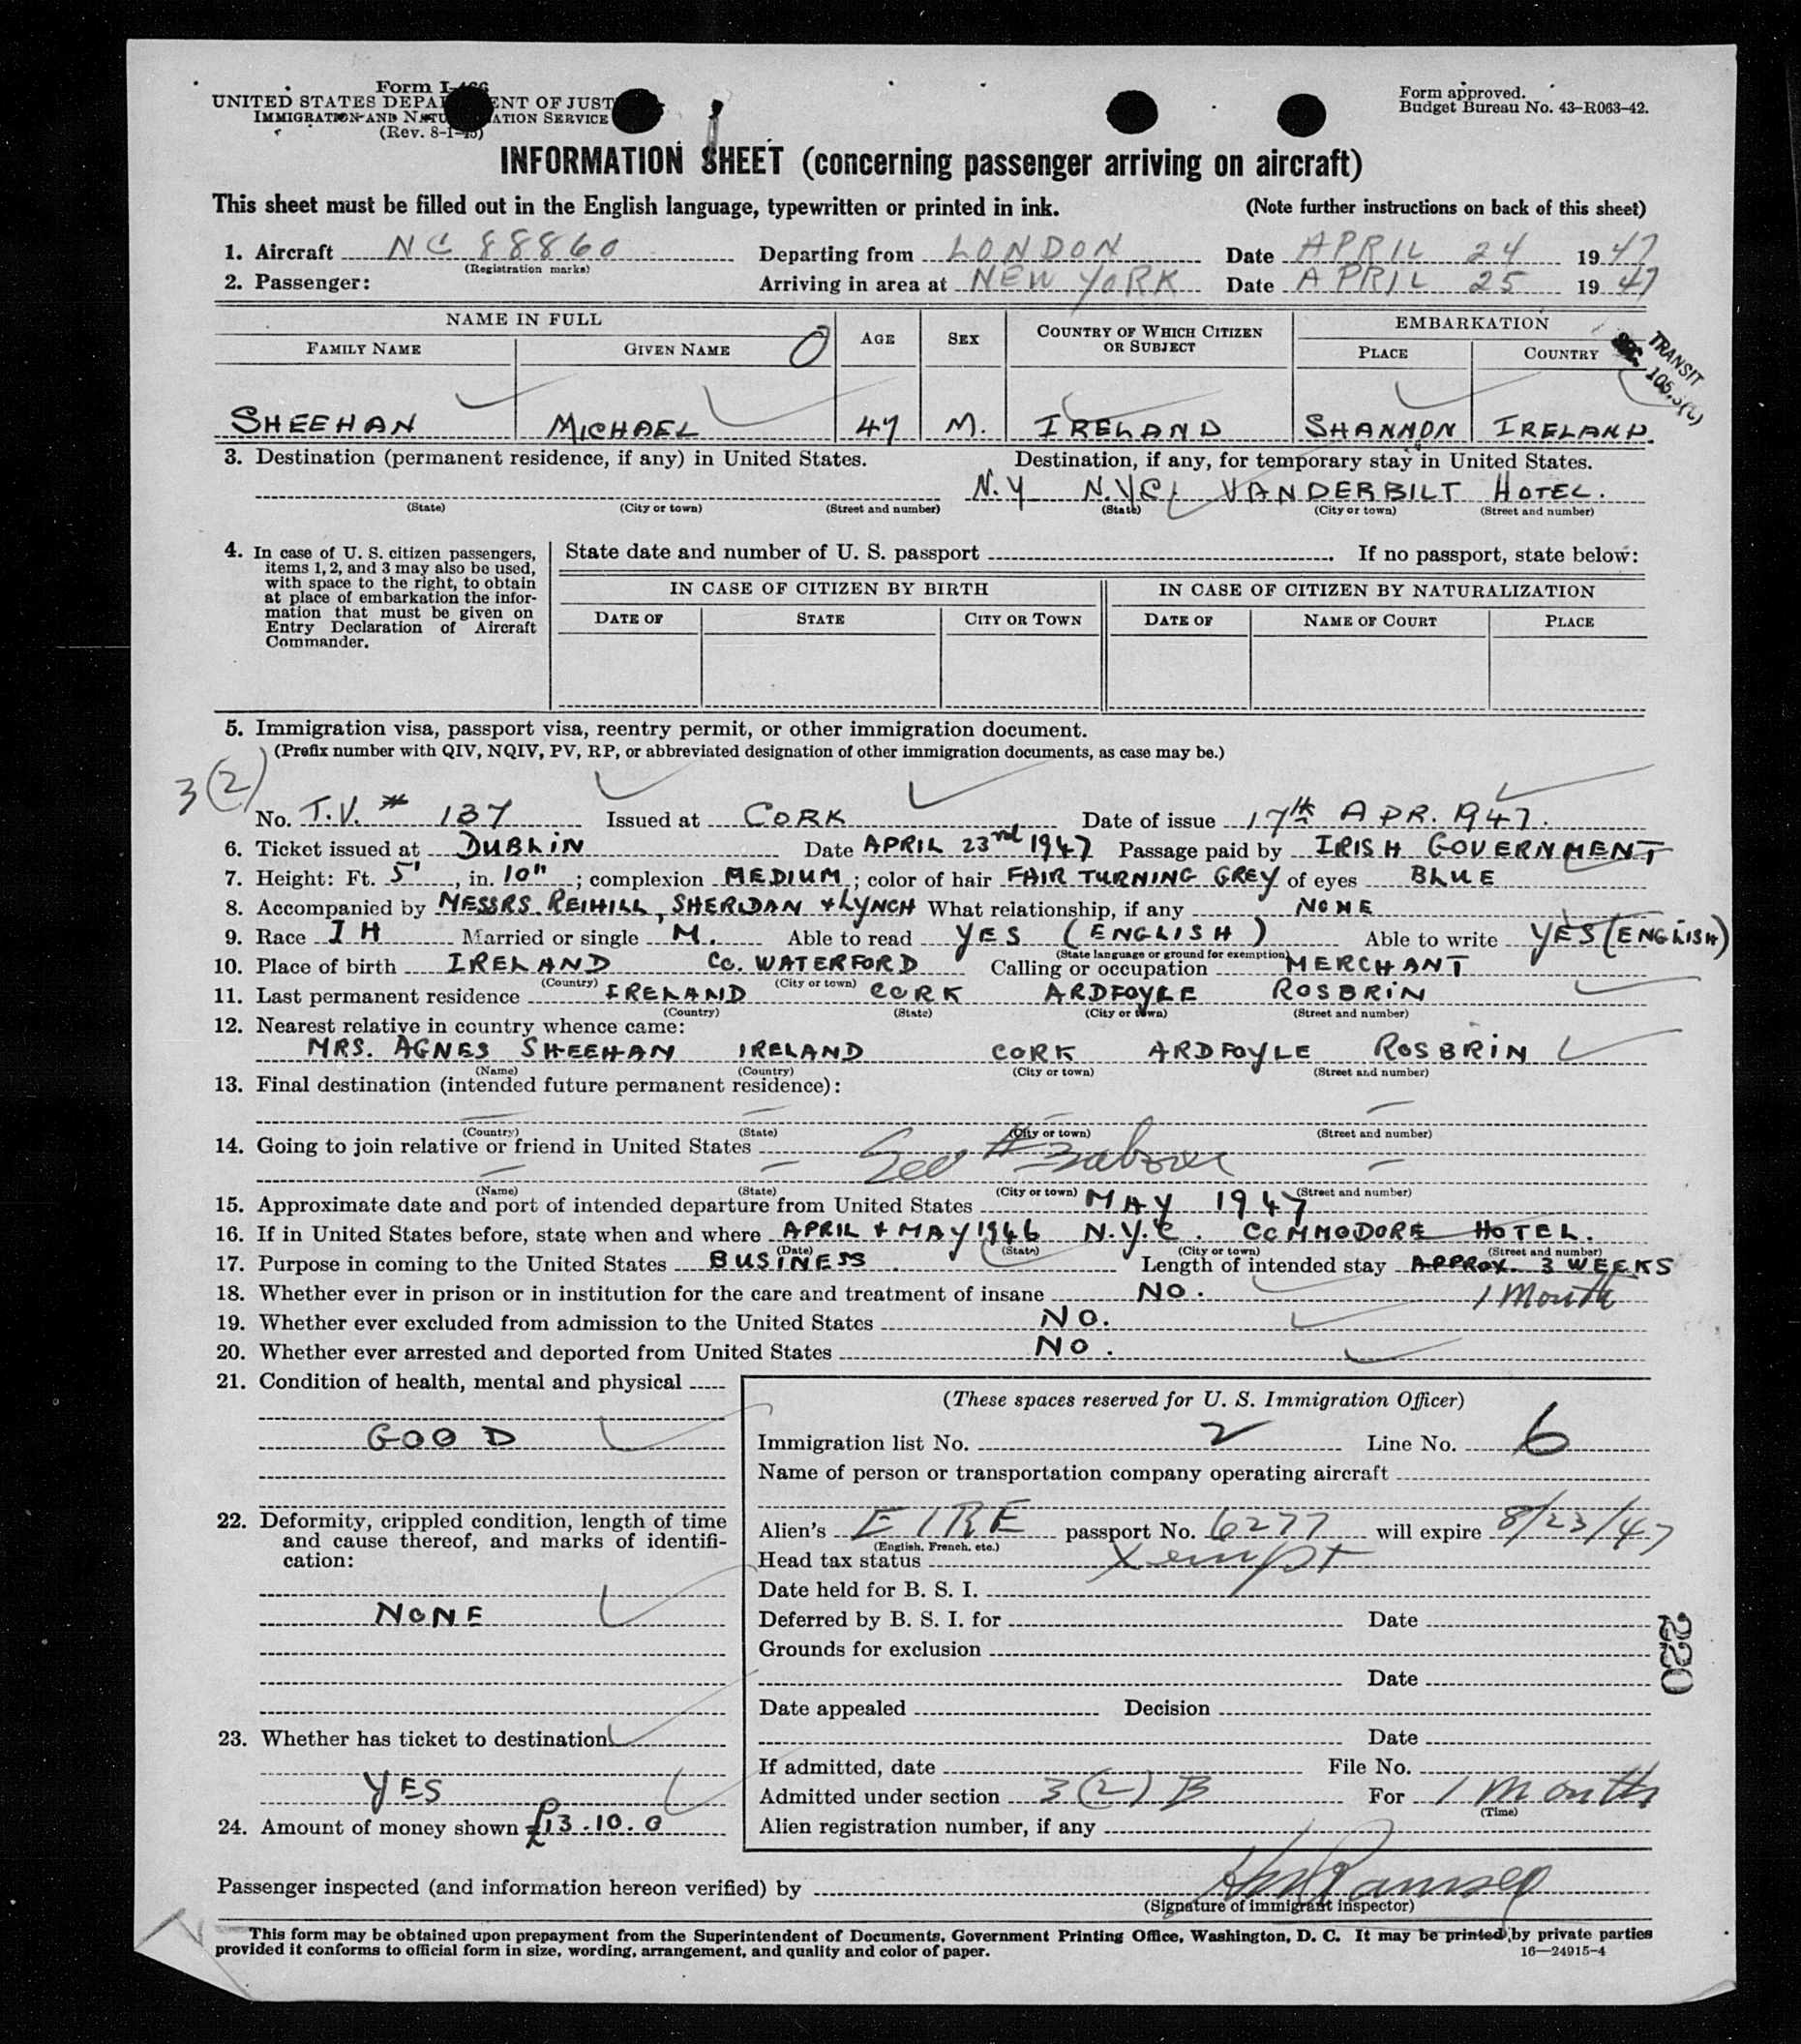 Form I-466
UNITED STATES DEPARTMENT OF JUSTICE
IMMIGRATION AND NATURALIZATION SERVICE
(Rev. 8-1-45)
Form approved.
Budget Bureau No. 43-R063-42.
INFORMATION SHEET (concerning passenger arriving on aircraft)
This sheet must be filled out in the English language, typewritten or printed in ink. (Note further instructions on back of this sheet)
1. Aircraft NC 88860 Departing from LONDON Date APRIL 24 1947
(Registration marks)
2. Passenger: Arriving in area at NEW YORK Date APRIL 25 1947
NAME IN FULL AGE SEX COUNTRY OF WHICH CITIZEN OR SUBJECT EMBARKATION
FAMILY NAME GIVEN NAME PLACE COUNTRY
O
TRANSIT
SEC. 105.3(2)
SHEEHAN MICHAEL 47 M. IRELAND SHANNON IRELAND.
3. Destination (permanent residence, if any) in United States. Destination, if any, for temporary stay in United States.
N.Y N.Y.C. VANDERBILT HOTEL.
(State) (City or town) (Street and number) (State) (City or town) (Street and number)
4. In case of U. S. citizen passengers, items 1, 2, and 3 may also be used, with space to the right, to obtain at place of embarkation the information that must be given on Entry Declaration of Aircraft Commander.
State date and number of U. S. passport If no passport, state below:
IN CASE OF CITIZEN BY BIRTH IN CASE OF CITIZEN BY NATURALIZATION
DATE OF STATE CITY OR TOWN DATE OF NAME OF COURT PLACE
5. Immigration visa, passport visa, reentry permit, or other immigration document.
(Prefix number with QIV, NQIV, PV, RP, or abbreviated designation of other immigration documents, as case may be.)
3(2)
No. T.V. # 137 Issued at CORK Date of issue 17th APR. 1947.
6. Ticket issued at DUBLIN Date APRIL 23rd 1947 Passage paid by IRISH GOVERNMENT
7. Height: Ft. 5', in. 10"; complexion MEDIUM; color of hair FAIR TURNING GREY of eyes BLUE
8. Accompanied by MESSRS. REIHILL, SHERIDAN & LYNCH What relationship, if any NONE
9. Race IH Married or single M. Able to read YES (ENGLISH) Able to write YES (ENGLISH)
(State language or ground for exemption)
10. Place of birth IRELAND CO. WATERFORD Calling or occupation MERCHANT
(Country) (City or town)
11. Last permanent residence IRELAND CORK ARDFOYLE ROSBRIN
(Country) (State) (City or town) (Street and number)
12. Nearest relative in country whence came:
MRS. AGNES SHEEHAN IRELAND CORK ARDFOYLE ROSBRIN
(Name) (Country) (City or town) (Street and number)
13. Final destination (intended future permanent residence):
— — — —
(Country) (State) (City or town) (Street and number)
14. Going to join relative or friend in United States
See #3 above
(Name) (State) (City or town) (Street and number)
15. Approximate date and port of intended departure from United States MAY 1947
16. If in United States before, state when and where APRIL & MAY 1946 N.Y.C. COMMODORE HOTEL.
(Date) (State) (City or town) (Street and number)
17. Purpose in coming to the United States BUSINESS. Length of intended stay APPROX. 3 WEEKS
18. Whether ever in prison or in institution for the care and treatment of insane NO. 1 Month
19. Whether ever excluded from admission to the United States NO.
20. Whether ever arrested and deported from United States NO.
21. Condition of health, mental and physical
GOOD
22. Deformity, crippled condition, length of time and cause thereof, and marks of identification:
NONE
23. Whether has ticket to destination
YES
24. Amount of money shown £13.10.0
(These spaces reserved for U. S. Immigration Officer)
Immigration list No. 2 Line No. 6
Name of person or transportation company operating aircraft
Alien's EIRE passport No. 6277 will expire 8/23/47
(English, French, etc.)
Head tax status Xempt
Date held for B. S. I.
Deferred by B. S. I. for Date
Grounds for exclusion
Date
Date appealed Decision
Date
If admitted, date File No.
Admitted under section 3(2) B For 1 Month
(Time)
Alien registration number, if any
220
Passenger inspected (and information hereon verified) by
(Signature of immigrant inspector)
This form may be obtained upon prepayment from the Superintendent of Documents, Government Printing Office, Washington, D. C. It may be printed by private parties
provided it conforms to official form in size, wording, arrangement, and quality and color of paper. 16—24915-4